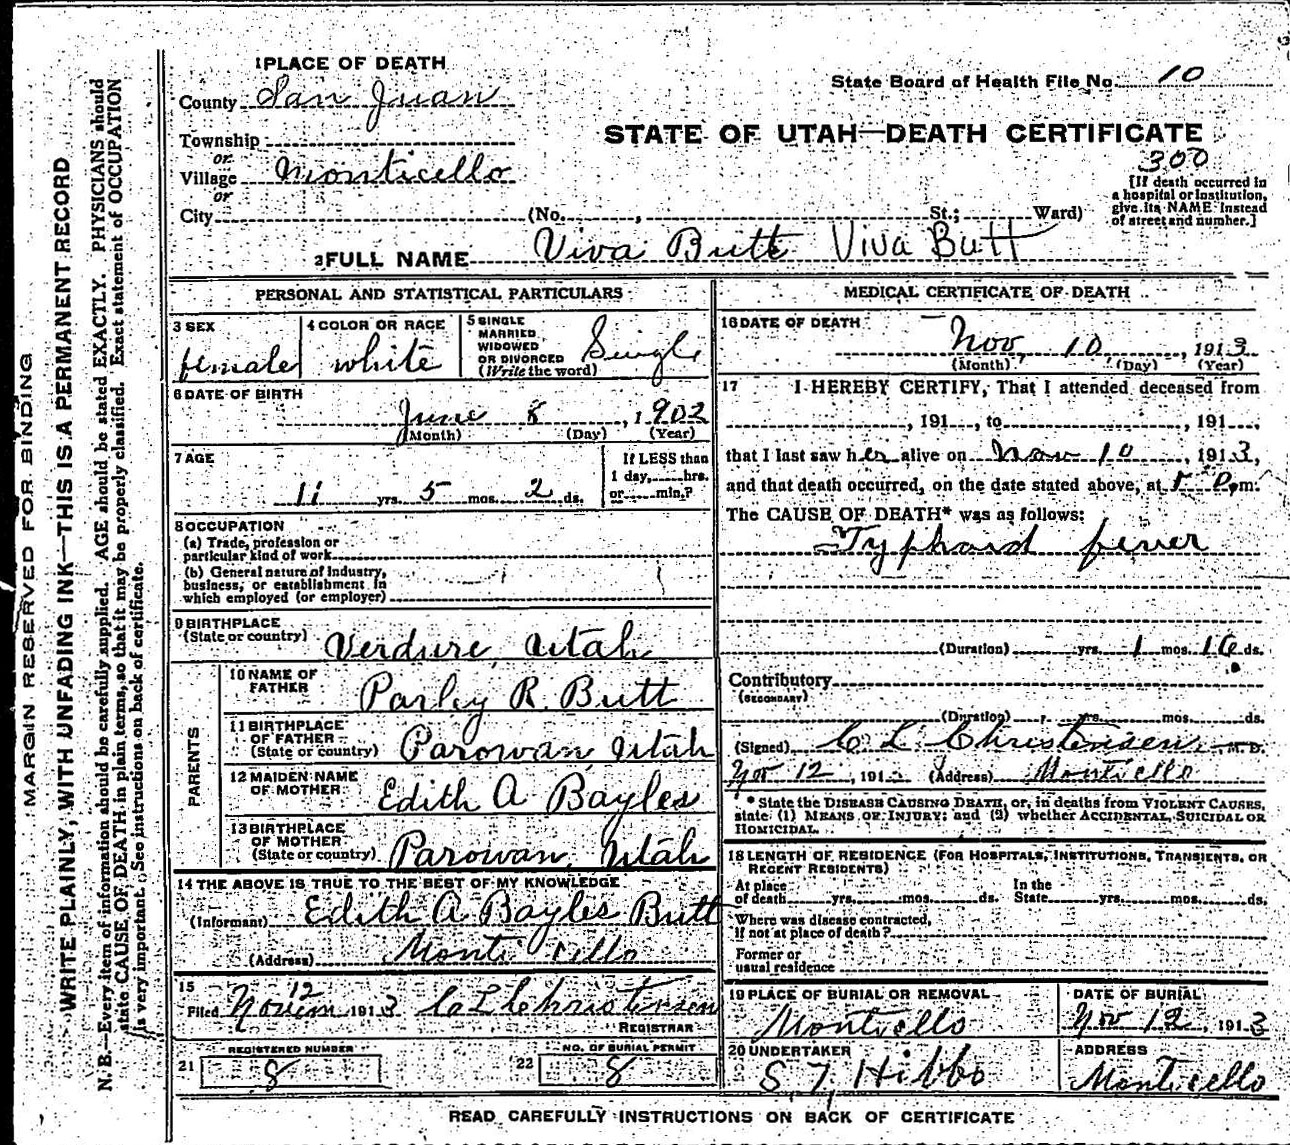 1 PLACE OF DEATH
County San Juan
State Board of Health File No. 10
Township
or
Village Monticello
or
City (No. , St.; Ward)
STATE OF UTAH—DEATH CERTIFICATE
300
[If death occurred in
a hospital or institution,
give its NAME instead
of street and number.]
2 FULL NAME Viva Butt Viva Butt
PERSONAL AND STATISTICAL PARTICULARS
3 SEX
female
4 COLOR OR RACE
white
5 SINGLE
MARRIED
WIDOWED
OR DIVORCED
(Write the word)
Single
6 DATE OF BIRTH
June 8, 1902
(Month) (Day) (Year)
7 AGE
11 yrs. 5 mos. 2 ds.
If LESS than
1 day, hrs.
or min.?
8 OCCUPATION
(a) Trade, profession or
particular kind of work
(b) General nature of Industry,
business, or establishment in
which employed (or employer)
9 BIRTHPLACE
(State or country)
Verdure, Utah
PARENTS
10 NAME OF
FATHER
Parley R. Butt
11 BIRTHPLACE
OF FATHER
(State or country)
Parowan, Utah
12 MAIDEN NAME
OF MOTHER
Edith A Bayles
13 BIRTHPLACE
OF MOTHER
(State or country)
Parowan, Utah
14 THE ABOVE IS TRUE TO THE BEST OF MY KNOWLEDGE
(Informant) Edith A Bayles Butt
(Address) Monticello
15
Filed 12 1913 C L Christensen
REGISTRAR
21 REGISTERED NUMBER
8
22 NO. OF BURIAL PERMIT
8
MEDICAL CERTIFICATE OF DEATH
16 DATE OF DEATH
Nov, 10, 1913
(Month) (Day) (Year)
17 I HEREBY CERTIFY, That I attended deceased from
, 191 , to , 191 ,
that I last saw her alive on Nov 10, 1913,
and that death occurred, on the date stated above, at P. m.
The CAUSE OF DEATH* was as follows:
Typhoid fever
(Duration) yrs. 1 mos. 16 ds.
Contributory
(SECONDARY)
(Duration) yrs. mos. ds.
(Signed) C L Christensen, M. D.
Nov 12, 191 (Address) Monticello
* State the DISEASE CAUSING DEATH, or, in deaths from VIOLENT CAUSES,
state (1) MEANS OF INJURY; and (2) whether ACCIDENTAL, SUICIDAL OR
HOMICIDAL.
18 LENGTH OF RESIDENCE (FOR HOSPITALS, INSTITUTIONS, TRANSIENTS, OR
RECENT RESIDENTS)
At place
of death yrs. mos. ds.
In the
State yrs. mos. ds.
Where was disease contracted,
if not at place of death?
Former or
usual residence
19 PLACE OF BURIAL OR REMOVAL
Monticello
DATE OF BURIAL
Nov 12, 1913
20 UNDERTAKER
Hibbs
ADDRESS
Monticello
READ CAREFULLY INSTRUCTIONS ON BACK OF CERTIFICATE
MARGIN RESERVED FOR BINDING
WRITE PLAINLY, WITH UNFADING INK—THIS IS A PERMANENT RECORD
N. B.—Every item of information should be carefully supplied. AGE should be stated EXACTLY. PHYSICIANS should
state CAUSE OF DEATH in plain terms, so that it may be properly classified. Exact statement of OCCUPATION
is very important. See instructions on back of certificate.